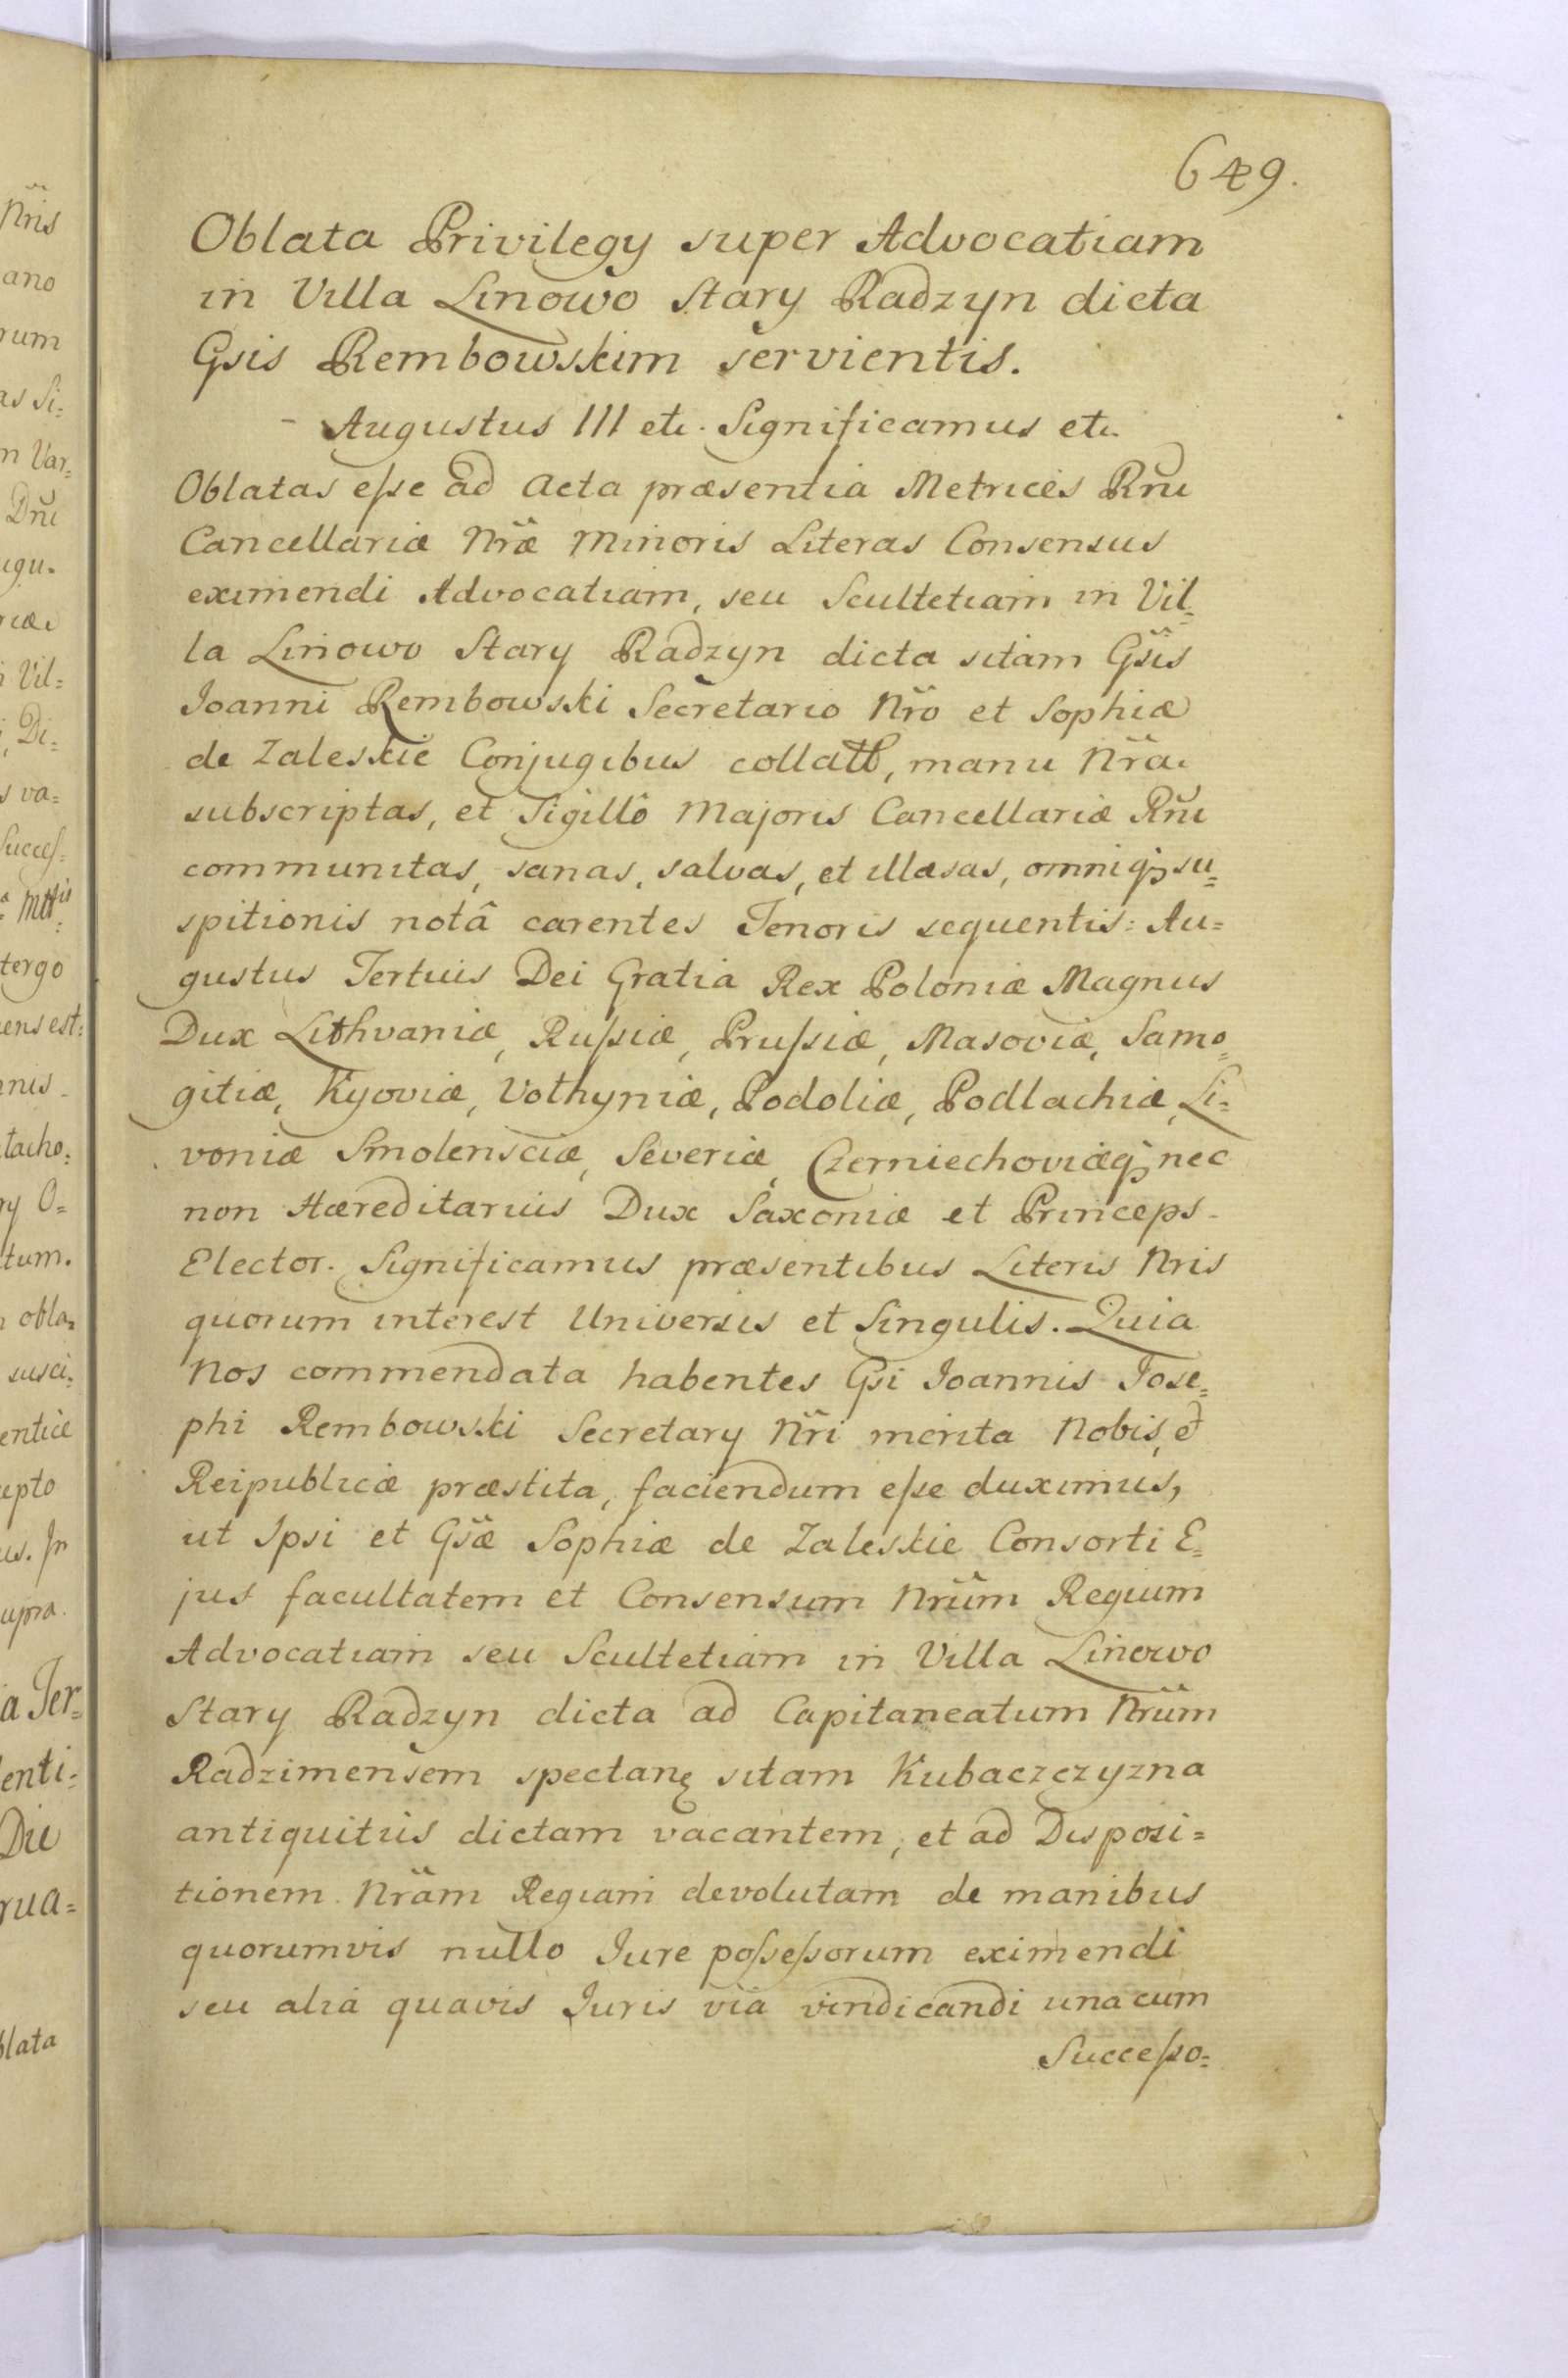 649.
Oblata Privilegy super Advocatiam
in Villa Linowo Stary Radzyn dicta
Gsis Rembowskim servientis.
Augustus III etc. Significamus etc.
Oblatas eſse ad Acta præsentia Metrices Rñi
Cancellariæ Nræ Minoris Literas Consensus
eximendi Advocatiam, seu Scultetiam in Vil=
la Linowo Stary Radzyn dicta sitam Gsis
Joanni Rembowski Secretario Nro et Sophiæ
de Zaleskie Conjugibus collatt, manu Nra
subscriptas, et Sigillô Majoris Cancellariæ Rñi
communitas, sanas, salvas, et illæsas, omniqꝫ su=
spitionis notâ carentes Tenoris sequentis: Au=
gustus Tertius Dei Gratia Rex Poloniæ Magnus
Dux Lithvaniæ, Ruſsiæ, Pruſsiæ, Masoviæ, Samo=
gitiæ, Kyoviæ, Volhyniæ, Podoliæ, Podlachiæ, Li=
voniæ Smolensciæ, Severiæ, Czerniechoviæqꝫ nec
non Hæreditarius Dux Saxoniæ et Princeps
Elector. Significamus præsentibus Literis Nris
quorum interest Universis et Singulis. Quia
Nos commendata habentes Gsi Joannis Jose=
phi Rembowski Secretary Nri merita Nobis, et
Reipublicæ præstita, faciendum eſse duximus,
ut Ipsi et Gsæ Sophiæ de Zaleskie Consorti E=
jus facultatem et Consensum Nrum Regium
Advocatiam seu Scultetiam in Villa Linowo
Stary Radzyn dicta ad Capitaneatum Nrum
Radzimensem spectanę sitam Kubaczczyzna
antiquitus dictam vacantem, et ad Disposi=
tionem Nram Regiam devolutam de manibus
quorumvis nullo Jure poſseſsorum eximendi
seu aliâ quavis Juris viâ vindicandi una cum
Succeſso=